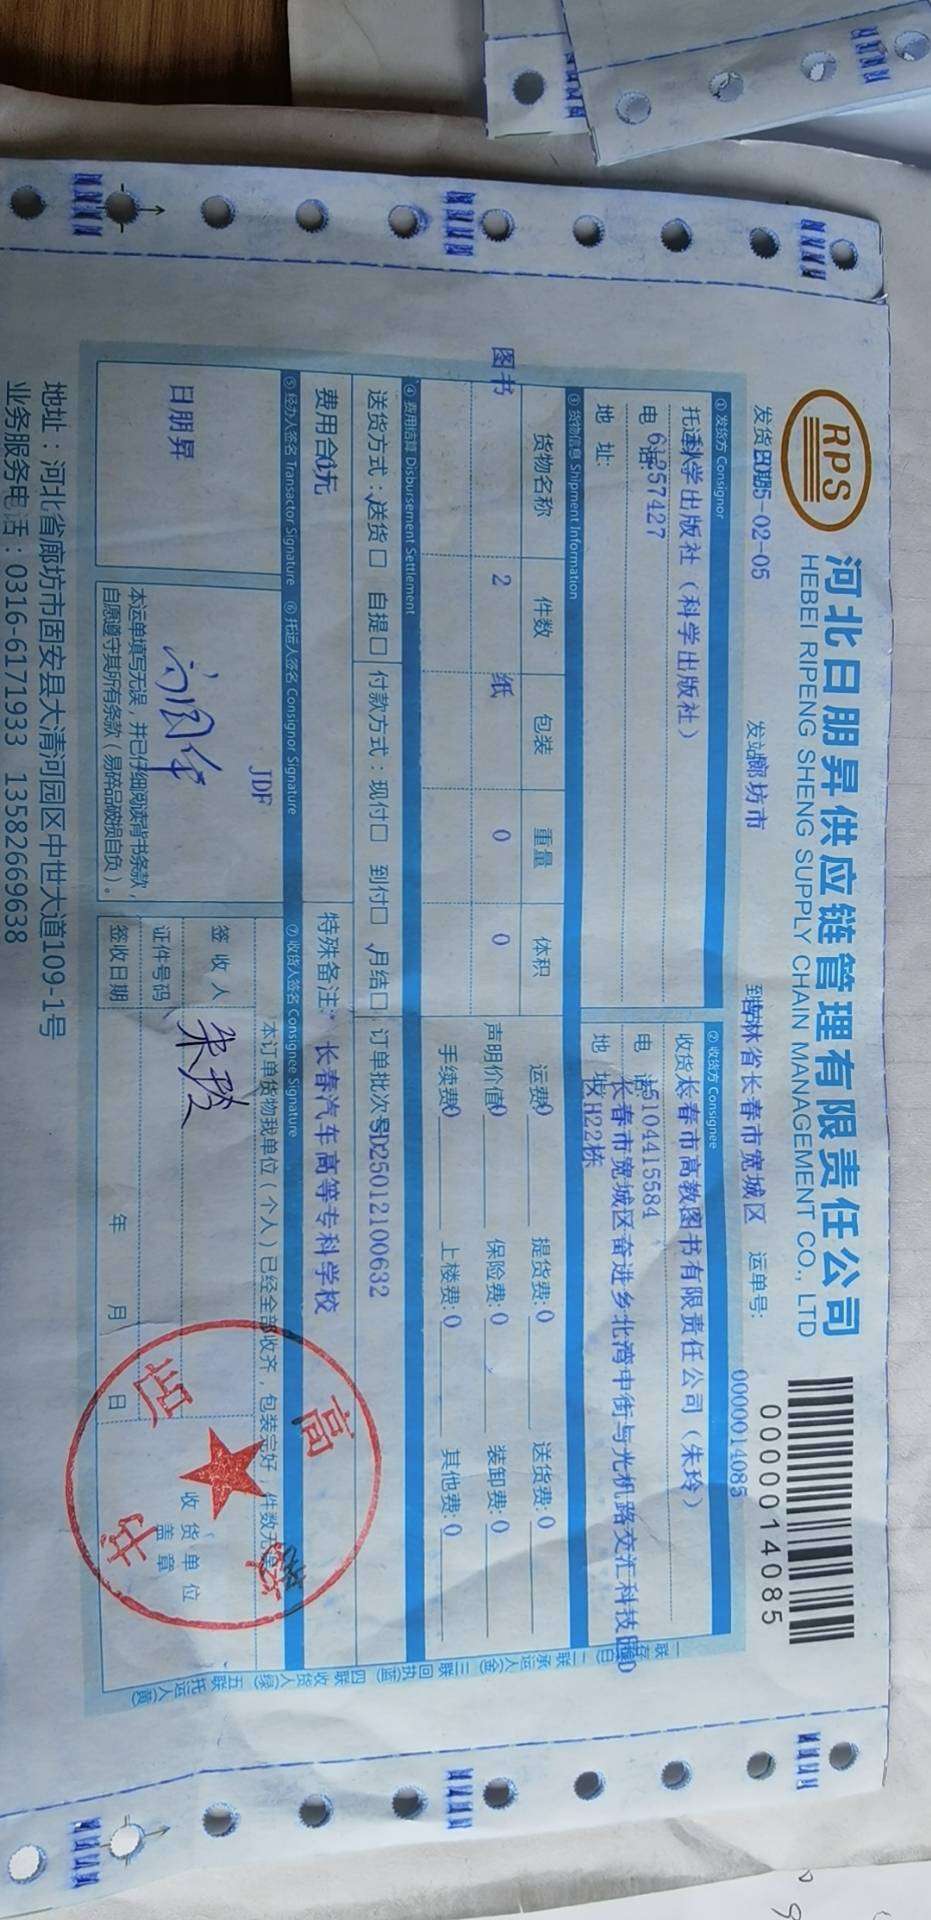 RPS
河北日朋昇供应链管理有限责任公司
HEBEI RIPENG SHENG SUPPLY CHAIN MANAGEMENT CO., LTD
0000014085
发货日期 2025-02-05 发站: 廊坊市 到站: 吉林省长春市宽城区 运单号: 0000014085
① 发货方 Consignor
科学出版社（科学出版社）
电话: 61257427
地 址:
② 收货方 Consignee
长春市高教图书有限责任公司（朱玲）
5104415584
长春市宽城区奋进乡北湾中街与光机路交汇科技
H22栋
③ 货物信息 Shipment Information
货物名称 件数 包装 重量 体积
图书 2 纸 0 0
运费: 0 提货费: 0 送货费: 0
声明价值: 0 保险费: 0 装卸费: 0
手续费: 0 上楼费: 0 其他费: 0
④ 费用结算 Disbursement Settlement
送货方式: ✓送货□ 自提□ 付款方式: 现付□ 到付□ ✓月结□ 订单批次号: SD25012100632
费用合计: 0元 特殊备注: 长春汽车高等专科学校
⑤ 经办人签名 Transactor Signature
日朋昇
⑥ 托运人签名 Consignor Signature
JDF
本运单填写无误，并已仔细阅读背书条款，
自愿遵守其所有条款（易碎品破损自负）。
⑦ 收货人签名 Consignee Signature
本订单货物我单位（个人）已经全部收齐，包装完好，件数无
签 收 人 朱玲
证件号码
签收日期 年 月 日
收货单位
盖章
高
图
书
地址：河北省廊坊市固安县大清河园区中世大道109-1号
业务服务电话：0316-6171933 13582669638